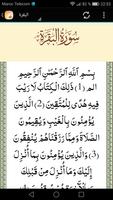 Maroc Telecom 22:55
البقرة
سُورَةُ البَقَرَةِ
بِسْمِ اللَّهِ الرَّحْمَنِ الرَّحِيمِ
الم (1) ذَلِكَ الْكِتَابُ لَا رَيْبَ
فِيهِ هُدًى لِلْمُتَّقِينَ (2) الَّذِينَ
يُؤْمِنُونَ بِالْغَيْبِ وَيُقِيمُونَ
الصَّلَاةَ وَمِمَّا رَزَقْنَاهُمْ
يُنْفِقُونَ (3) وَالَّذِينَ يُؤْمِنُونَ
بِمَا أُنْزِلَ إِلَيْكَ وَمَا أُنْزِلَ مِنْ